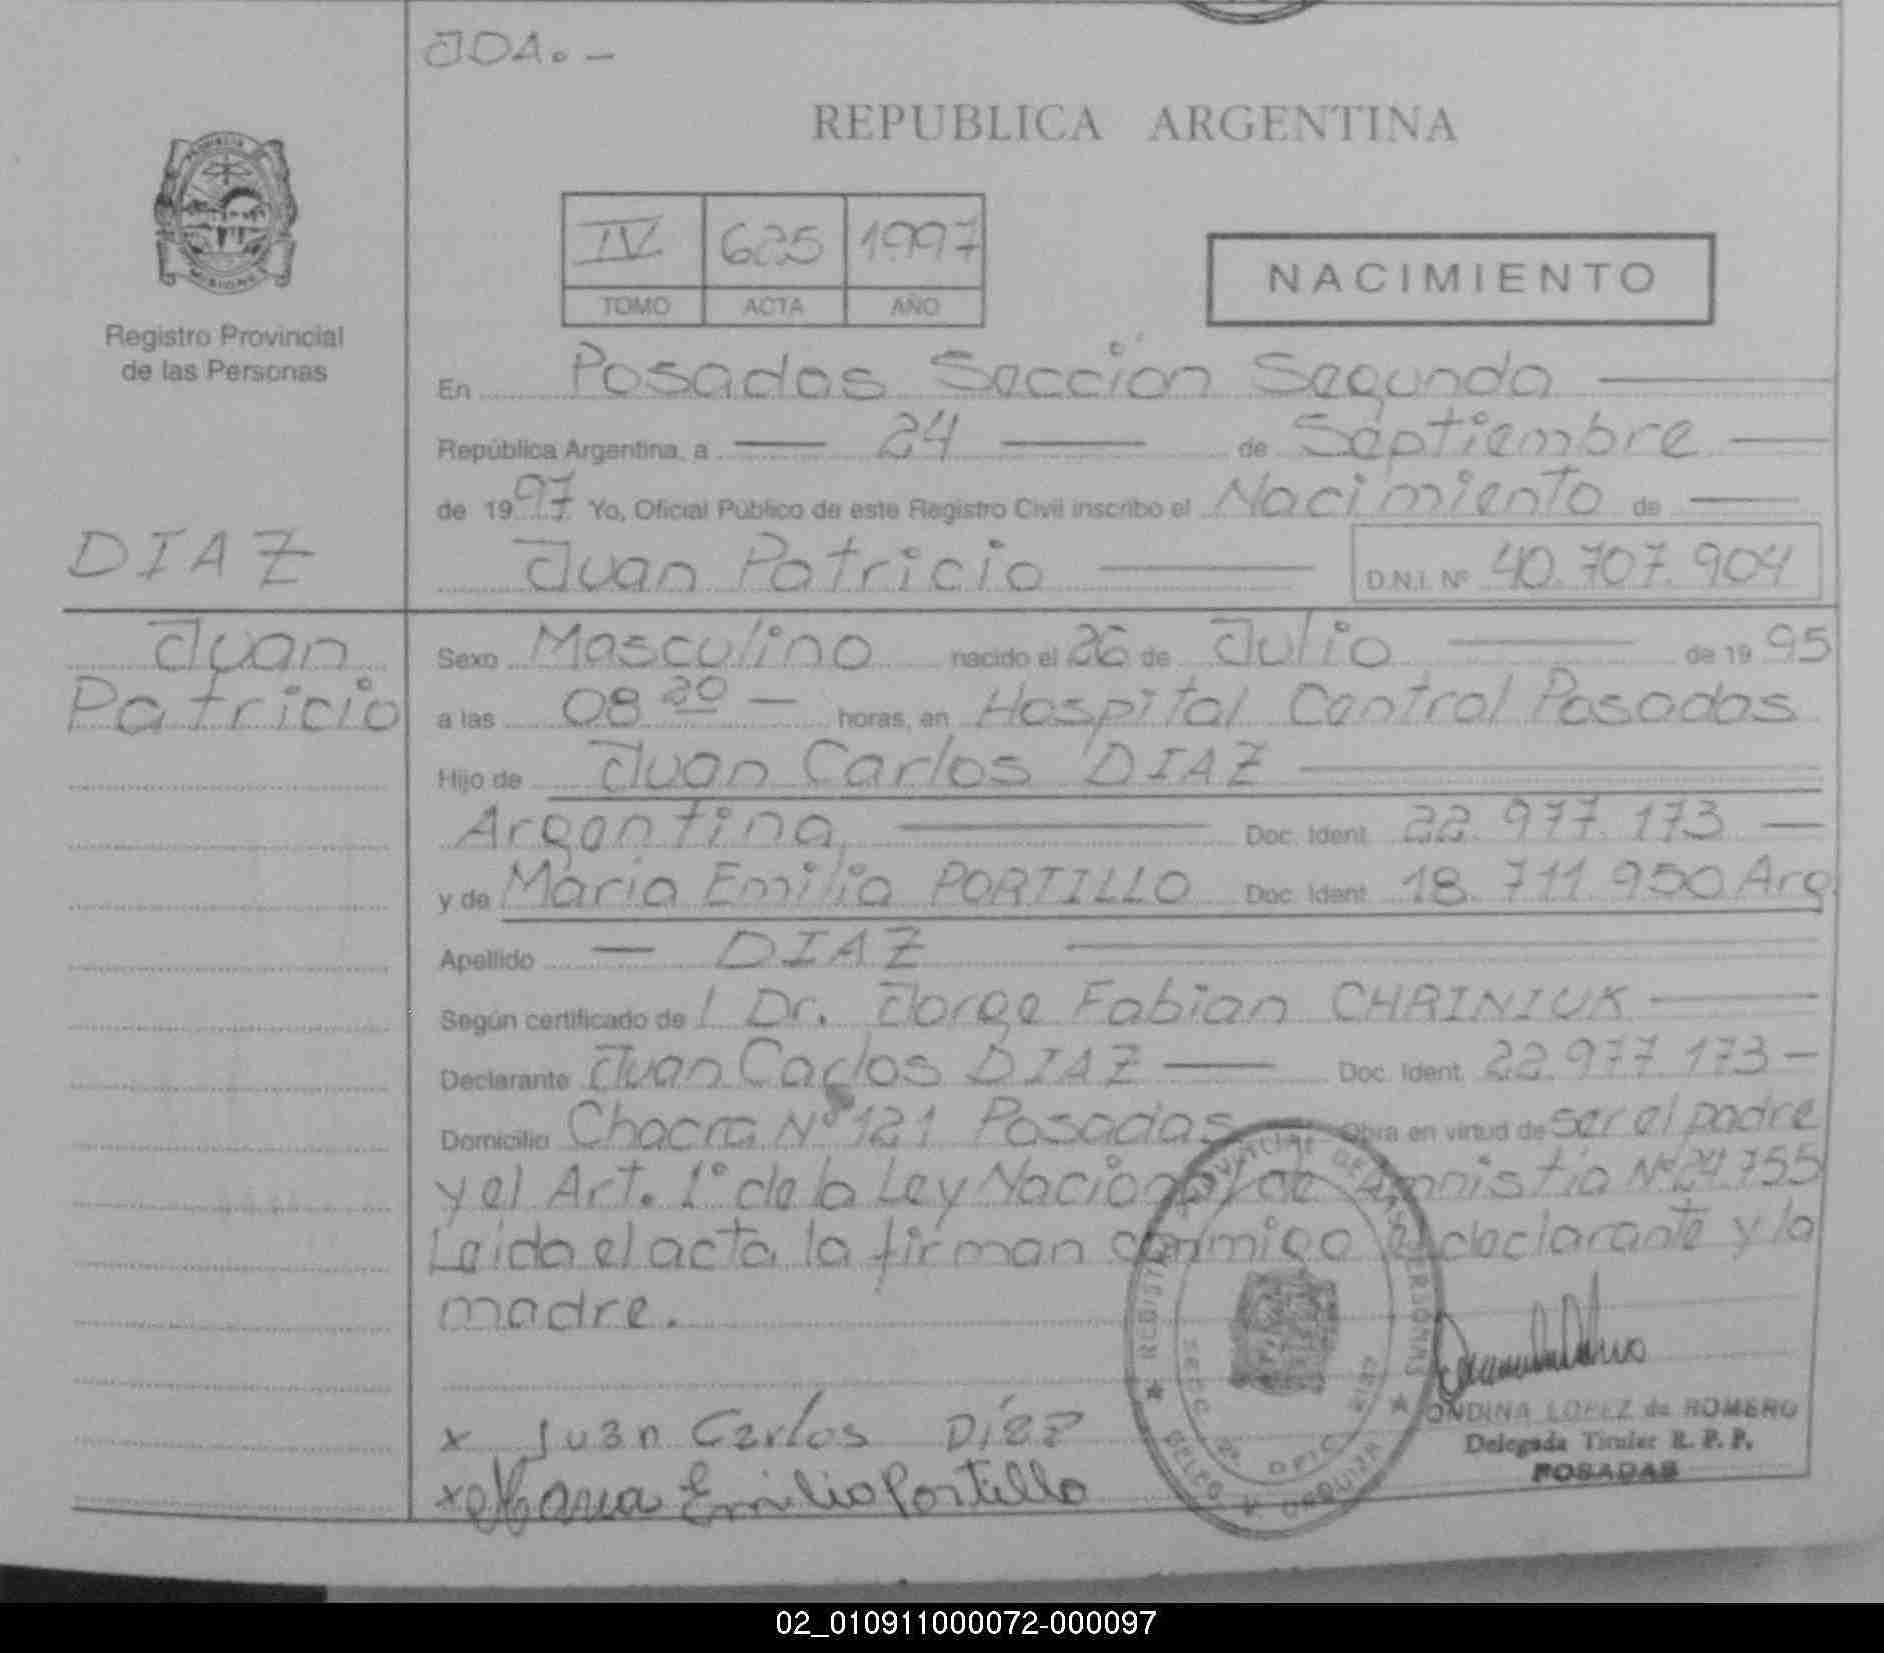 JDA. -
REPUBLICA ARGENTINA
IV 625 1997
TOMO ACTA AÑO
NACIMIENTO
Registro Provincial
de las Personas
En Posadas Sección Segunda
República Argentina, a 24 de Septiembre
de 1997 Yo, Oficial Público de este Registro Civil inscribo el Nacimiento de
DIAZ
Juan Patricio D.N.I. Nº 40.707.904
Juan
Patricio
Sexo Masculino nacido el 26 de Julio de 1995
a las 08 30 - horas, en Hospital Central Posadas
Hijo de Juan Carlos DIAZ
Argentina Doc. Ident. 22.977.173 -
y de Maria Emilia PORTILLO Doc. Ident. 18.711.950 Arg.
Apellido - DIAZ
Según certificado de l Dr. Jorge Fabian CHAINIUK
Declarante Juan Carlos DIAZ Doc. Ident. 22.977.173 -
Domicilio Chacra Nº 121 Posadas Obra en virtud de ser el padre
y el Art. 1º de la Ley Nacional de Amnistia Nº 24.755
Leida el acta la firman conmigo el declarante y la
madre.
x Juan Carlos Díaz
x Maria Emilia Portillo
ONDINA LOPEZ de ROMERO
Delegada Titular R. P. P.
POSADAS
02_010911000072-000097